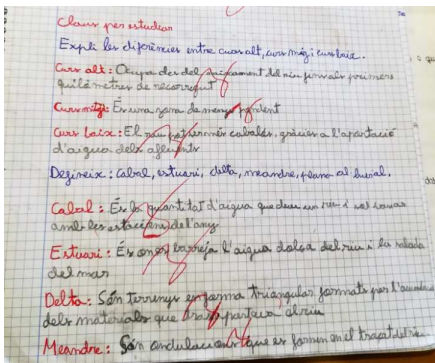 Claus per estudiar
Expli les diferències entre curs alt, curs mig i curs baix.
Curs alt: Ocupa des del naixement del riu fins als primers
quilòmetres de recorregut
Curs mitg: És una zona de menys pendent
Curs baix: El riu pot tenir més cabal, gràcies a l'aportació
d'aigua dels afluents
Defineix: cabal, estuari, delta, meandre, plana al·luvial.
Cabal: És la quantitat d'aigua que duu un riu i sol
amb les estacions de l'any
Estuari: És on es barreja l'aigua dolça del riu i la salada
del mar
Delta: Són terrenys en forma triangular formats per l'
dels materials que el riu
Meandre: Són ondulacions que es formen en el traçat del riu